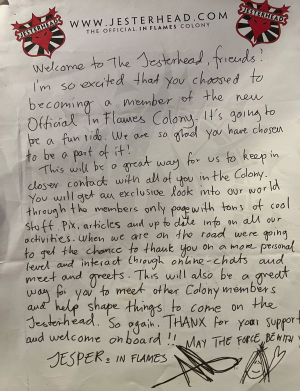 JESTERHEAD
JESTERHEAD
WWW.JESTERHEAD.COM
THE OFFICIAL IN FLAMES COLONY
Welcome to The Jesterhead, friends!
I'm so excited that you choosed to
becoming a member of the new
Official In Flames Colony. It's going to
be a fun ride. We are so glad you have chosen
to be a part of it!
This will be a great way for us to keep in
closer contact with all of you in the Colony.
You will get an exclusive look into our world
through the members only page with tons of cool
stuff. Pix, articles and up to date info on all our
activities. When we are on the road were going
to get the chance to thank you on a more personal
level and interact through online-chats and
meet and greets. This will also be a great
way for you to meet other Colony members
and help shape things to come on the
Jesterhead. So again, THANX for your support
and welcome onboard!! MAY THE FORCE BE WITH Y
JESPER: IN FLAMES